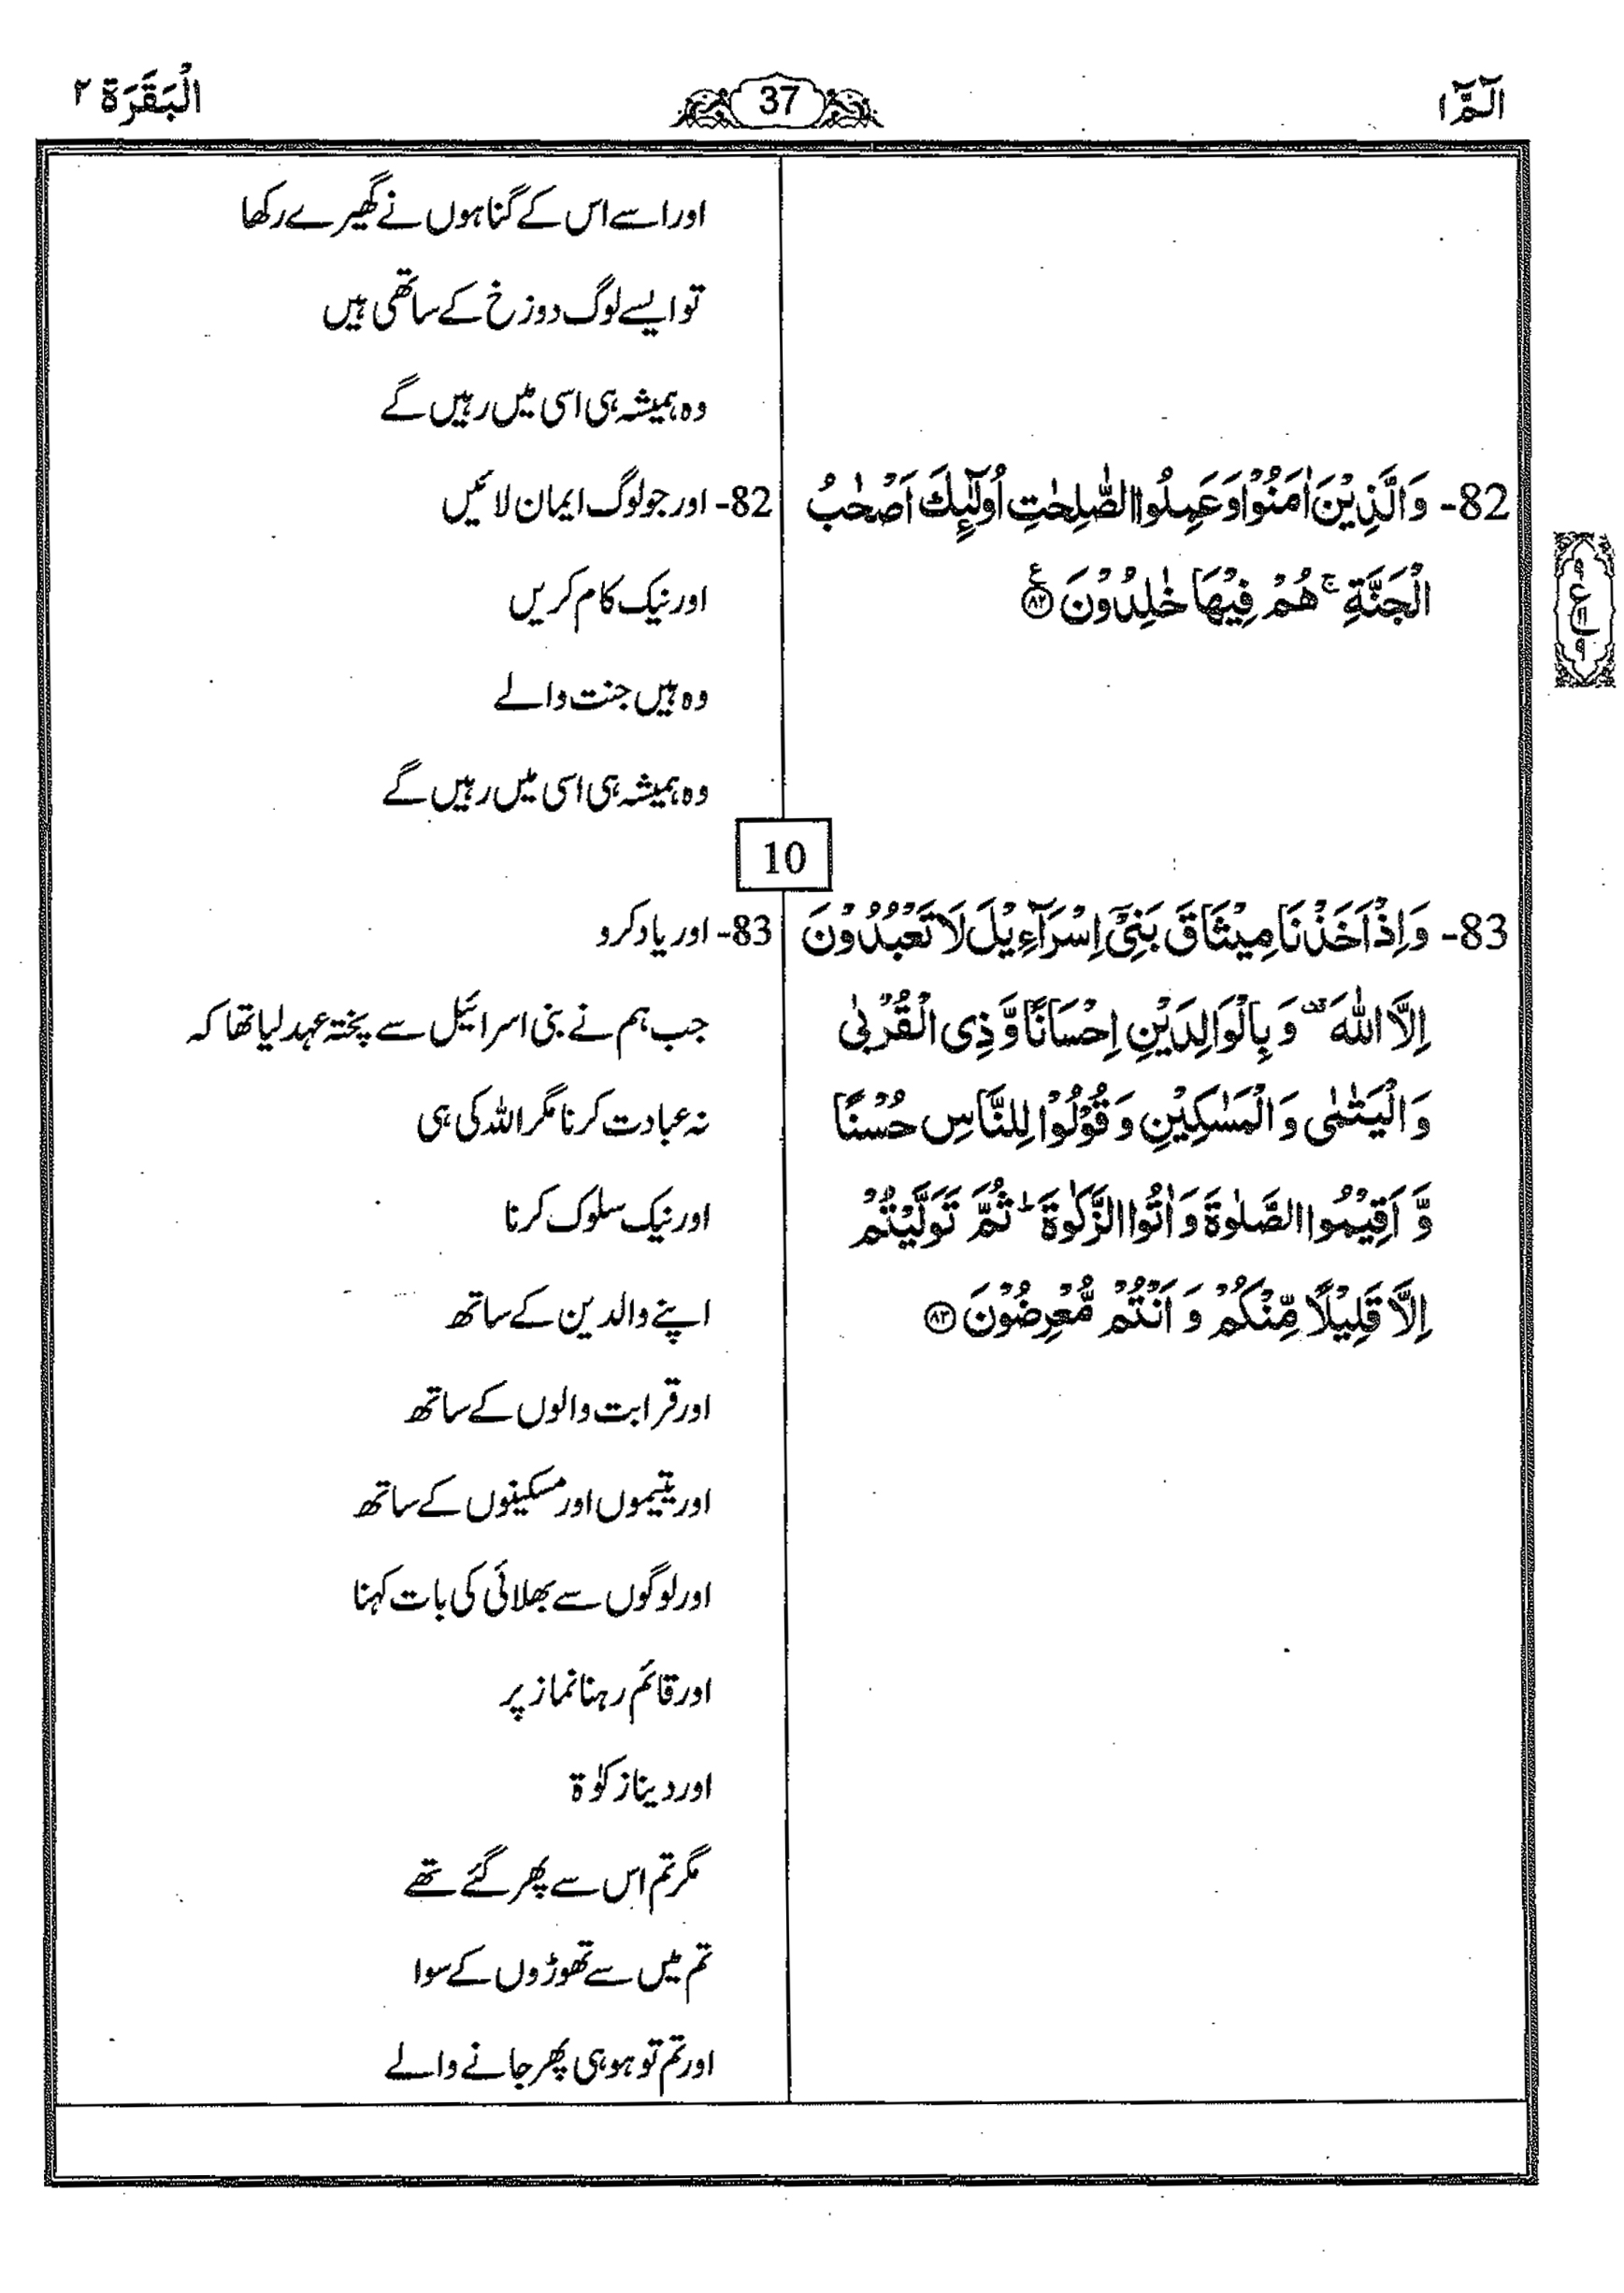 الٓمّٓ ١
37
الْبَقَرَة ٢
اور اسے اس کے گناہوں نے گھیرے رکھا
تو ایسے لوگ دوزخ کے ساتھی ہیں
وہ ہمیشہ ہی اسی میں رہیں گے
82- وَالَّذِيْنَ اٰمَنُوْا وَعَمِلُوا الصّٰلِحٰتِ اُولٰٓئِكَ اَصْحٰبُ
الْجَنَّةِ ۚ هُمْ فِيْهَا خٰلِدُوْنَ ﴿۸۲﴾ ع
82- اور جو لوگ ایمان لائیں
اور نیک کام کریں
وہ ہیں جنت والے
وہ ہمیشہ ہی اسی میں رہیں گے
ع
10
83- وَاِذْ اَخَذْنَا مِيْثَاقَ بَنِيْٓ اِسْرَآءِيْلَ لَا تَعْبُدُوْنَ
اِلَّا اللّٰهَ ۟ وَبِالْوَالِدَيْنِ اِحْسَانًا وَّذِي الْقُرْبٰى
وَالْيَتٰمٰى وَالْمَسٰكِيْنِ وَقُوْلُوْا لِلنَّاسِ حُسْنًا
وَّاَقِيْمُوا الصَّلٰوةَ وَاٰتُوا الزَّكٰوةَ ؕ ثُمَّ تَوَلَّيْتُمْ
اِلَّا قَلِيْلًا مِّنْكُمْ وَاَنْتُمْ مُّعْرِضُوْنَ ﴿۸۳﴾
83- اور یاد کرو
جب ہم نے بنی اسرائیل سے پختہ عہد لیا تھا کہ
نہ عبادت کرنا مگر اللہ کی ہی
اور نیک سلوک کرنا
اپنے والدین کے ساتھ
اور قرابت والوں کے ساتھ
اور یتیموں اور مسکینوں کے ساتھ
اور لوگوں سے بھلائی کی بات کہنا
اور قائم رہنا نماز پر
اور دینا زکوٰۃ
مگر تم اس سے پھر گئے تھے
تم میں سے تھوڑوں کے سوا
اور تم تو ہو ہی پھر جانے والے